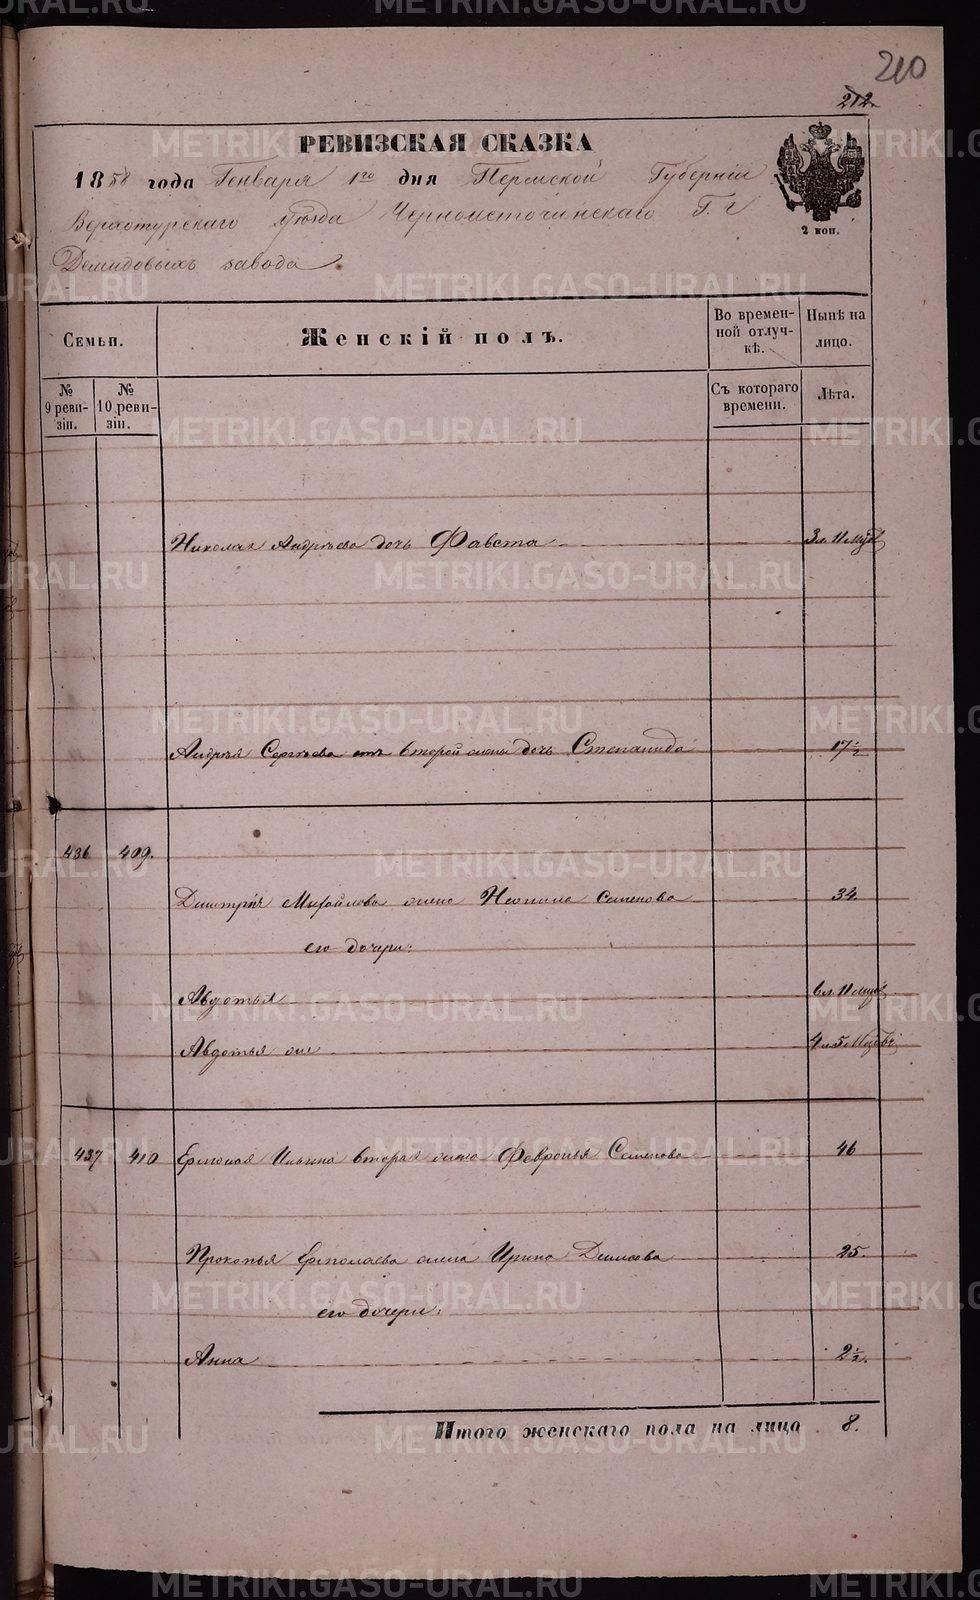 210
212.
РЕВИЗСКАЯ СКАЗКА
1858 года Генваря 1го дня Пермской Губерніи
Верхотурскаго уѣзда Черноисточинскаго Г. г
Демидовыхъ завода.
2 коп.
Семьи.
Женскій полъ.
Во времен-
ной отлуч-
кѣ.
Нынѣ на
лицо.
№
9 реви-
зіи.
№
10 реви-
зіи.
Съ котораго
времени.
Лѣта.
Николая Андреева дочь Фавста 3 л 11 мцвъ
Андрея Сергѣева отъ второй жены дочь Степанида 17 ½
436 409.
Дмитрія Михайлова жена Неонила Семенова 34.
его дочери:
Авдотья 6 л 11 мцвъ
Авдотья же 4 л 5 мцовъ
437 410 Ермолая Ильина вторая жена Февронья Семенова 46
Прокопья Ермолаева жена Ирина Демидова 25.
его дочери:
Анна 2 ½.
Итого женскаго пола на лицо 8.
METRIKI.GASO-URAL.RU